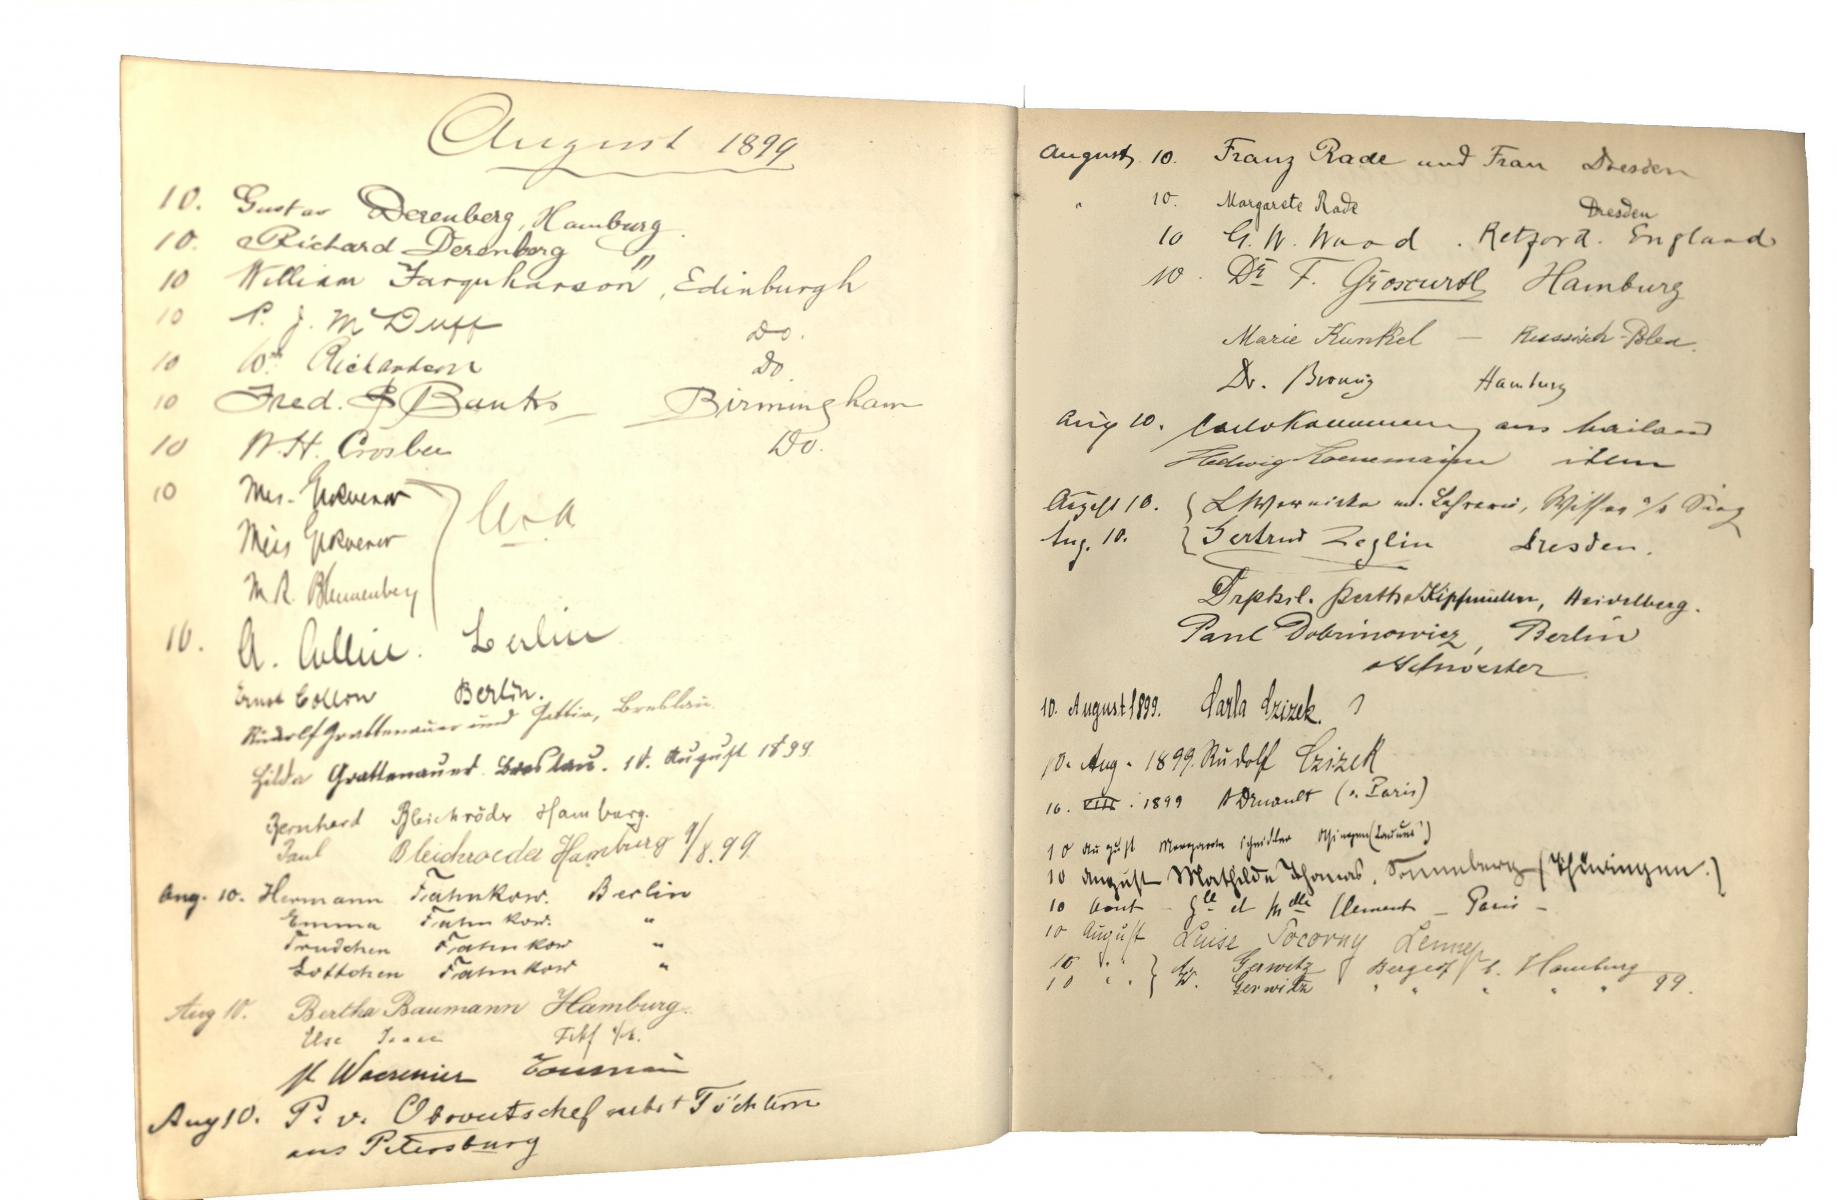 August 1899
10. Gustav Derenberg, Hamburg.
10. Richard Derenberg "
10 William Farquharson, Edinburgh
10 P. J. McDuff Do.
10 Wm Richardson Do
10 Fred. S Banks Birmingham
10 W. H. Crosbee Do.
10 Mrs. Grosvenor
Miss Grosvenor
M. R. Blumenberg
10. A. Collin. Berlin
Ernst Collin Berlin.
Rudolf Grattenauer und Gattin, Breslau.
Hilda Grattenauer Breslau. 10. August 1899
Bernhard Bleichröder Hamburg.
Paul Bleichroeder Hamburg 9/8.99.
Aug. 10. Hermann Fahnkow. Berlin
Emma Fahnkow. "
Trudchen Fahnkow "
Lottchen Fahnkow "
Aug 10. Bertha Baumann Hamburg.
Else
Aug 10. P. v. nebst Töchtern
aus Petersburg
August 10. Franz Rade und Frau Dresden
" 10. Margarete Rade Dresden
10 G. W. Wood. Retford. England
10. Dr F. Groscurth Hamburg
Marie Kunkel — Russisch-Polen.
Dr. Hamburg
Aug 10. aus Mailand
Hedwig item
August 10. Wissen a/d Sieg
Aug. 10. Gertrud Zeglin Dresden.
Dr phil. Bertha Kipfmüller, Heidelberg.
Paul Dobrinowicz, Berlin
Schwester
10. August 1899. Carla Czizek.
10. Aug. 1899. Rudolf Czizek
10. VIII. 1899 (v. Paris)
10 August Margarete
10 August Mathilde Thomas. Sonneberg (Thüringen.)
10 Aout Mr et Mlle Clement – Paris –
10 August Luise Pocorny
10 " " L. Gerwitz Bergedorf b. Hamburg
10 " " W. Gerwitz " " " " " 99.